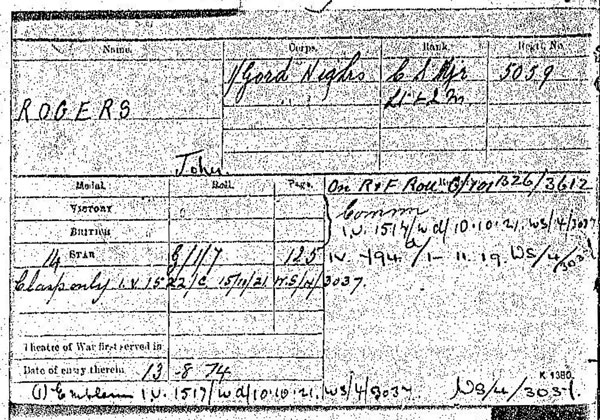 Name. Corps. Rank. Regtl. No.
ROGERS 1/Gord Highrs C S Mjr 5059
" " Lt & Q M.
John.
Medal. Roll. Page. On R & F Roll B26/3612
VICTORY
BRITISH Comm
I.V. 1517/W d/10.10.21. WS/4/3037
14 STAR G/1/7 125 IV. 194 /1-11.19. WS/4/3037
Clasp only I.V 1522/C 15/11/21 W.S/4/3037.
Theatre of War first served in
Date of entry therein 13 -8 14
K 1380.
(1) Emblem I.V. 1517/W d/10.10.21. WS/4/3037. WS/4/3037.